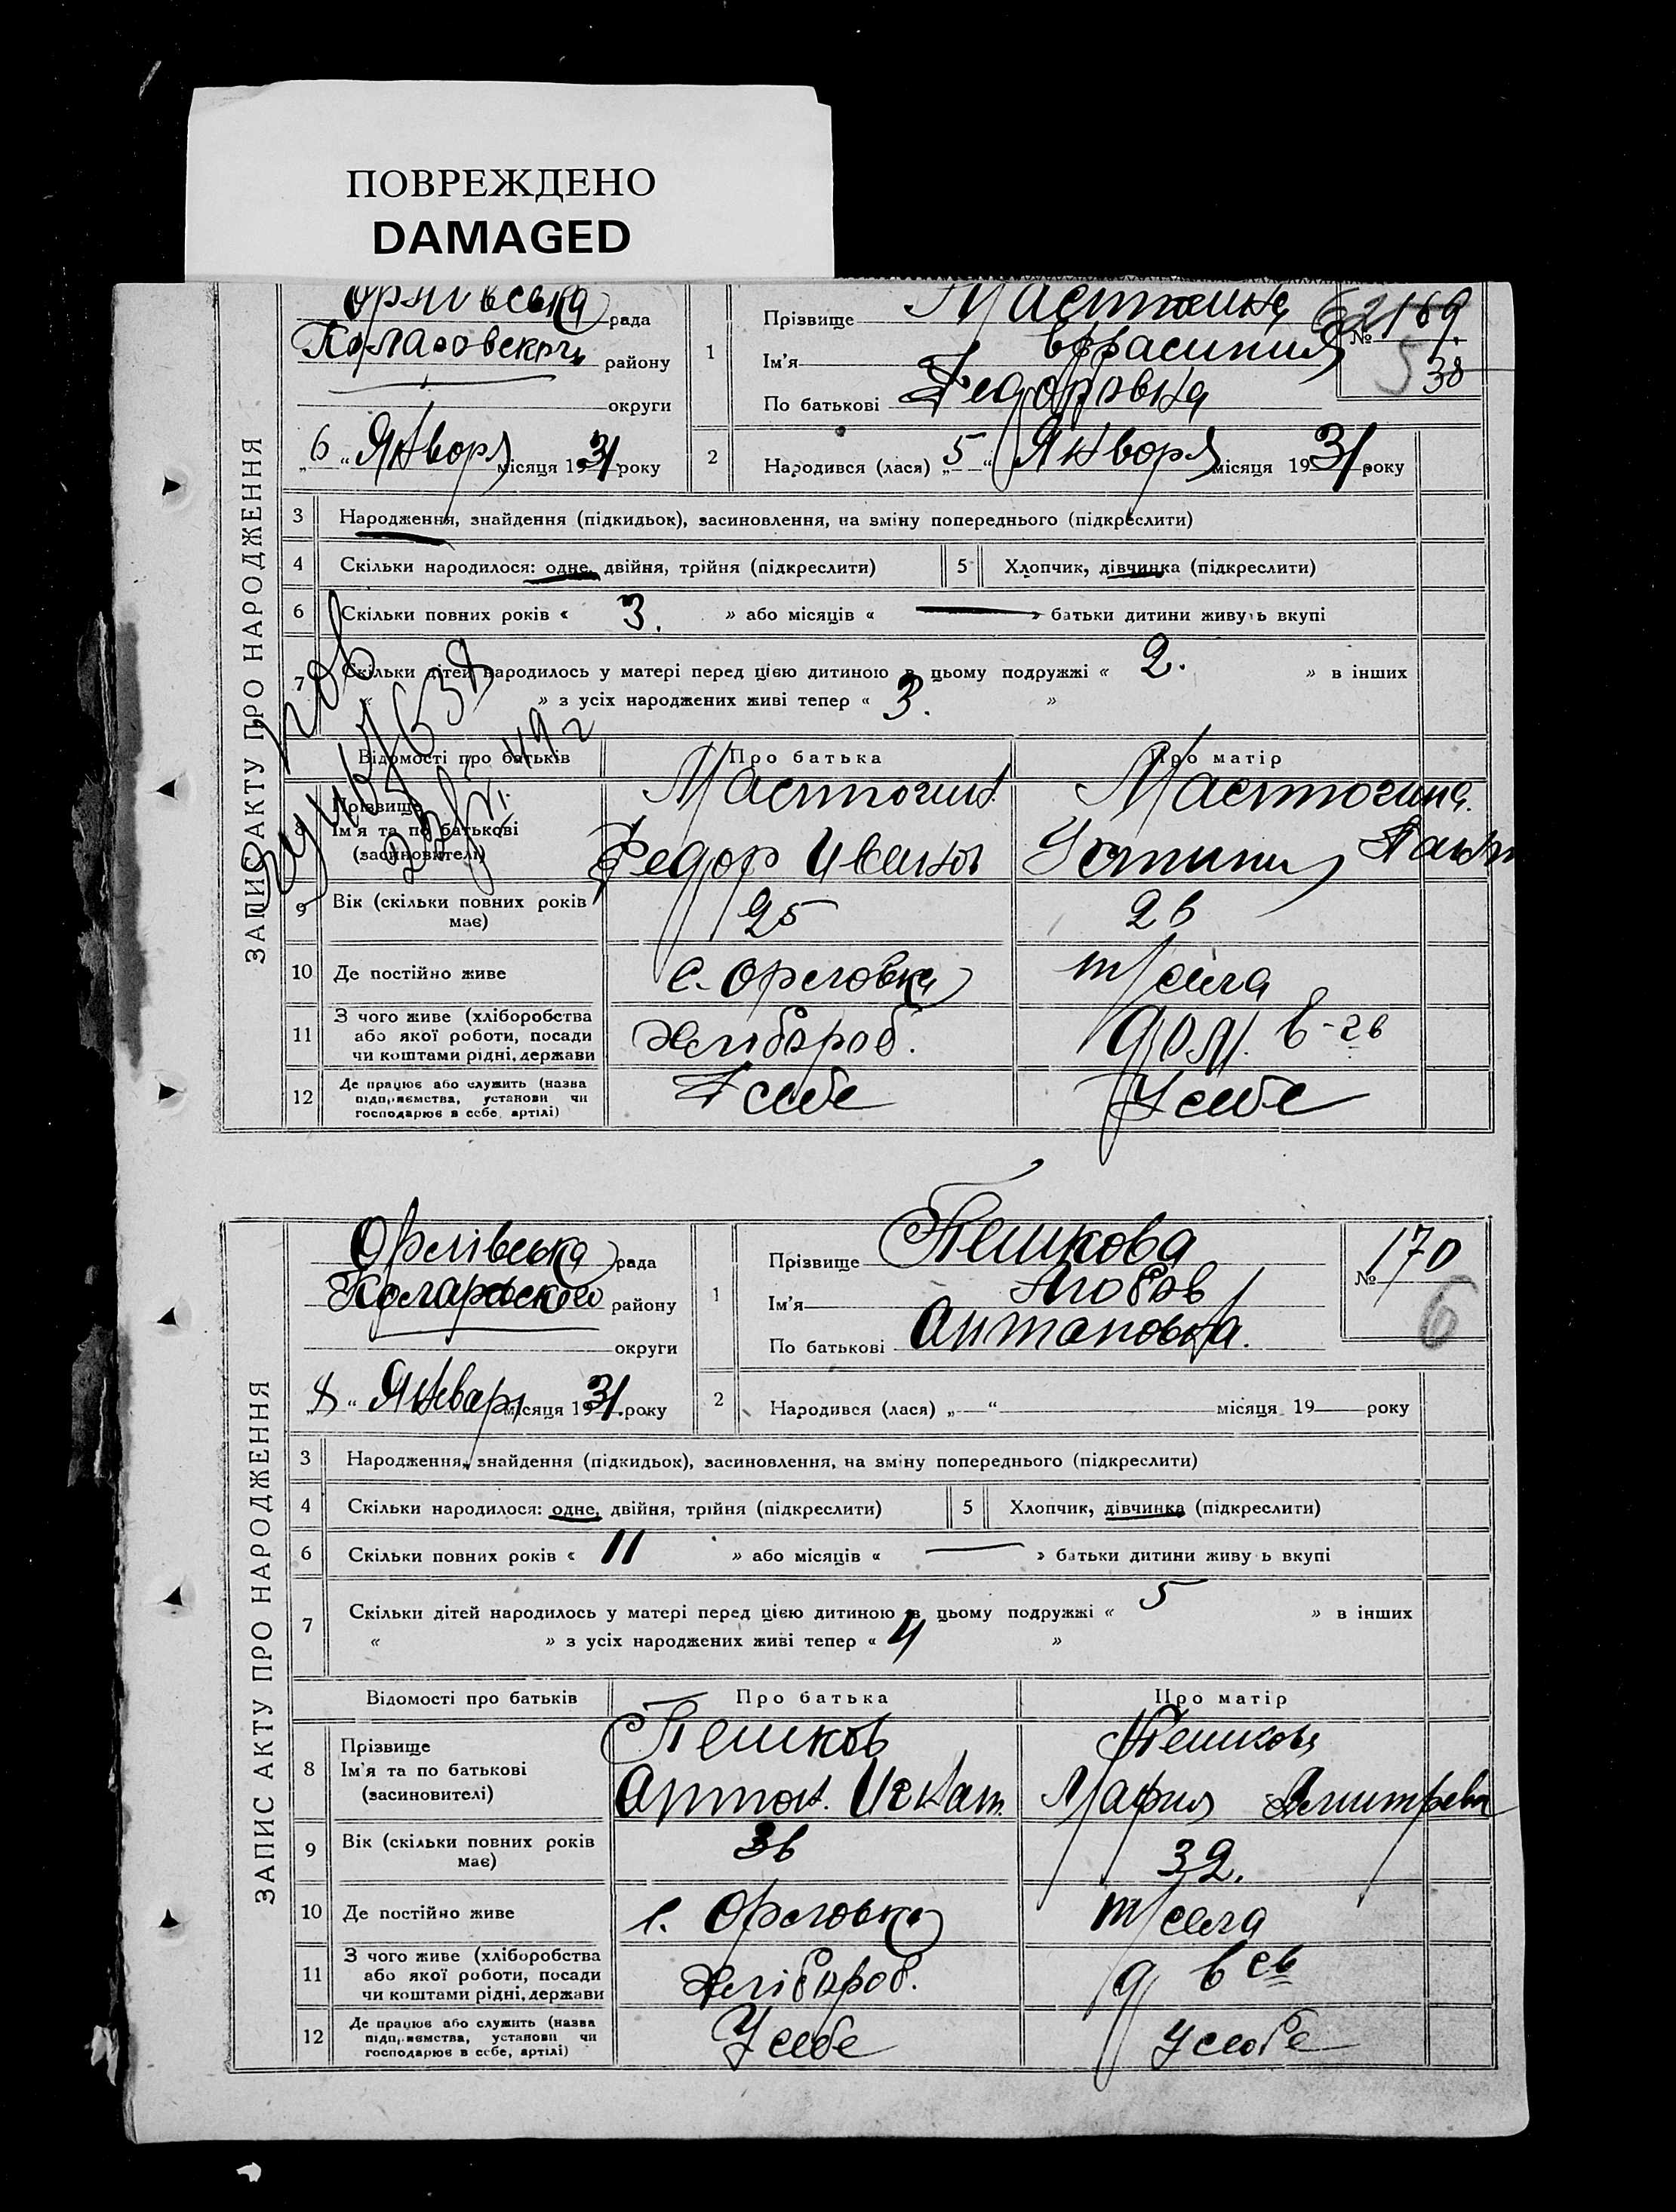 ПОВРЕЖДЕНО
DAMAGED
ЗАПИС АКТУ ПРО НАРОДЖЕННЯ
рада
району
округи
„6“ Января місяця 1931 року
1
Прізвище
Ім'я
По батькові Федоровна
№ 169
5
38
2
Народився (лася) „5“ Января місяця 1931 року
3 Народження, знайдення (підкидьок), засиновлення, на зміну попереднього (підкреслити)
4 Скільки народилося: одне, двійня, трійня (підкреслити)
5 Хлопчик, дівчинка (підкреслити)
6 Скільки повних років « 3. » або місяців « — » батьки дитини живуть вкупі
7 Скільки дітей народилось у матері перед цією дитиною в цьому подружжі « 2. » в інших
« » з усіх народжених живі тепер « 3. »
Відомості про батьків
Про батька
Про матір
8 Прізвище
Ім'я та по батькові
(засиновителі)
Федор Иванов
9 Вік (скільки повних років
має)
25
26
10 Де постійно живе
с. Орловка
т/села
11 З чого живе (хліборобства
або якої роботи, посади
чи коштами рідні, держави
Хлібороб.
12 Де працює або служить (назва
підприємства, установи чи
господарює в себе, артілі)
У себе
У себе
ЗАПИС АКТУ ПРО НАРОДЖЕННЯ
Орлівська рада
Коларовского району
округи
„8“ Январ місяця 1931 року
1
Прізвище Пешкова
Ім'я Любов
По батькові Антоновна.
№ 170
6
2
Народився (лася) „—“ місяця 19 року
3 Народження, знайдення (підкидьок), засиновлення, на зміну попереднього (підкреслити)
4 Скільки народилося: одне, двійня, трійня (підкреслити)
5 Хлопчик, дівчинка (підкреслити)
6 Скільки повних років « 11 » або місяців « — » батьки дитини живуть вкупі
7 Скільки дітей народилось у матері перед цією дитиною в цьому подружжі « 5 » в інших
« » з усіх народжених живі тепер « 4 »
Відомості про батьків
Про батька
Про матір
8 Прізвище
Ім'я та по батькові
(засиновителі)
Пешков
Антон. Игнат.
Пешкова
Мария Дмитрева
9 Вік (скільки повних років
має)
36
32.
10 Де постійно живе
с. Орловка
т/села
11 З чого живе (хліборобства
або якої роботи, посади
чи коштами рідні, держави
Хлібороб.
12 Де працює або служить (назва
підприємства, установи чи
господарює в себе, артілі)
У себе
У себе